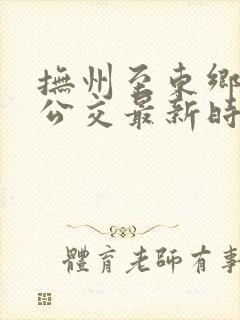 撫州至東鄉
公交最新時
體育老師有事